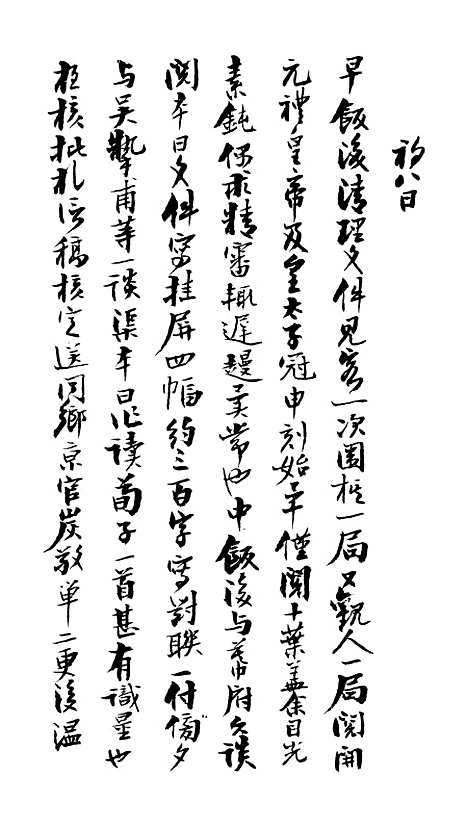 初八日
早飯後清理文件見客一次圍棋一局又觀人一局閱開
元禮皇帝及皇太子冠申刻始畢僅閱十葉蓋余目光
素鈍偶求精審輒遲鈍異常也中飯後与幕府久談
閱本日文件寫挂屏四幅約三百字寫對聯一付傍夕
与吳摯甫等一談渠本日作讀荀子一首甚有識量也
夜核批札信稿核定送同鄉京官炭敬单二更後温